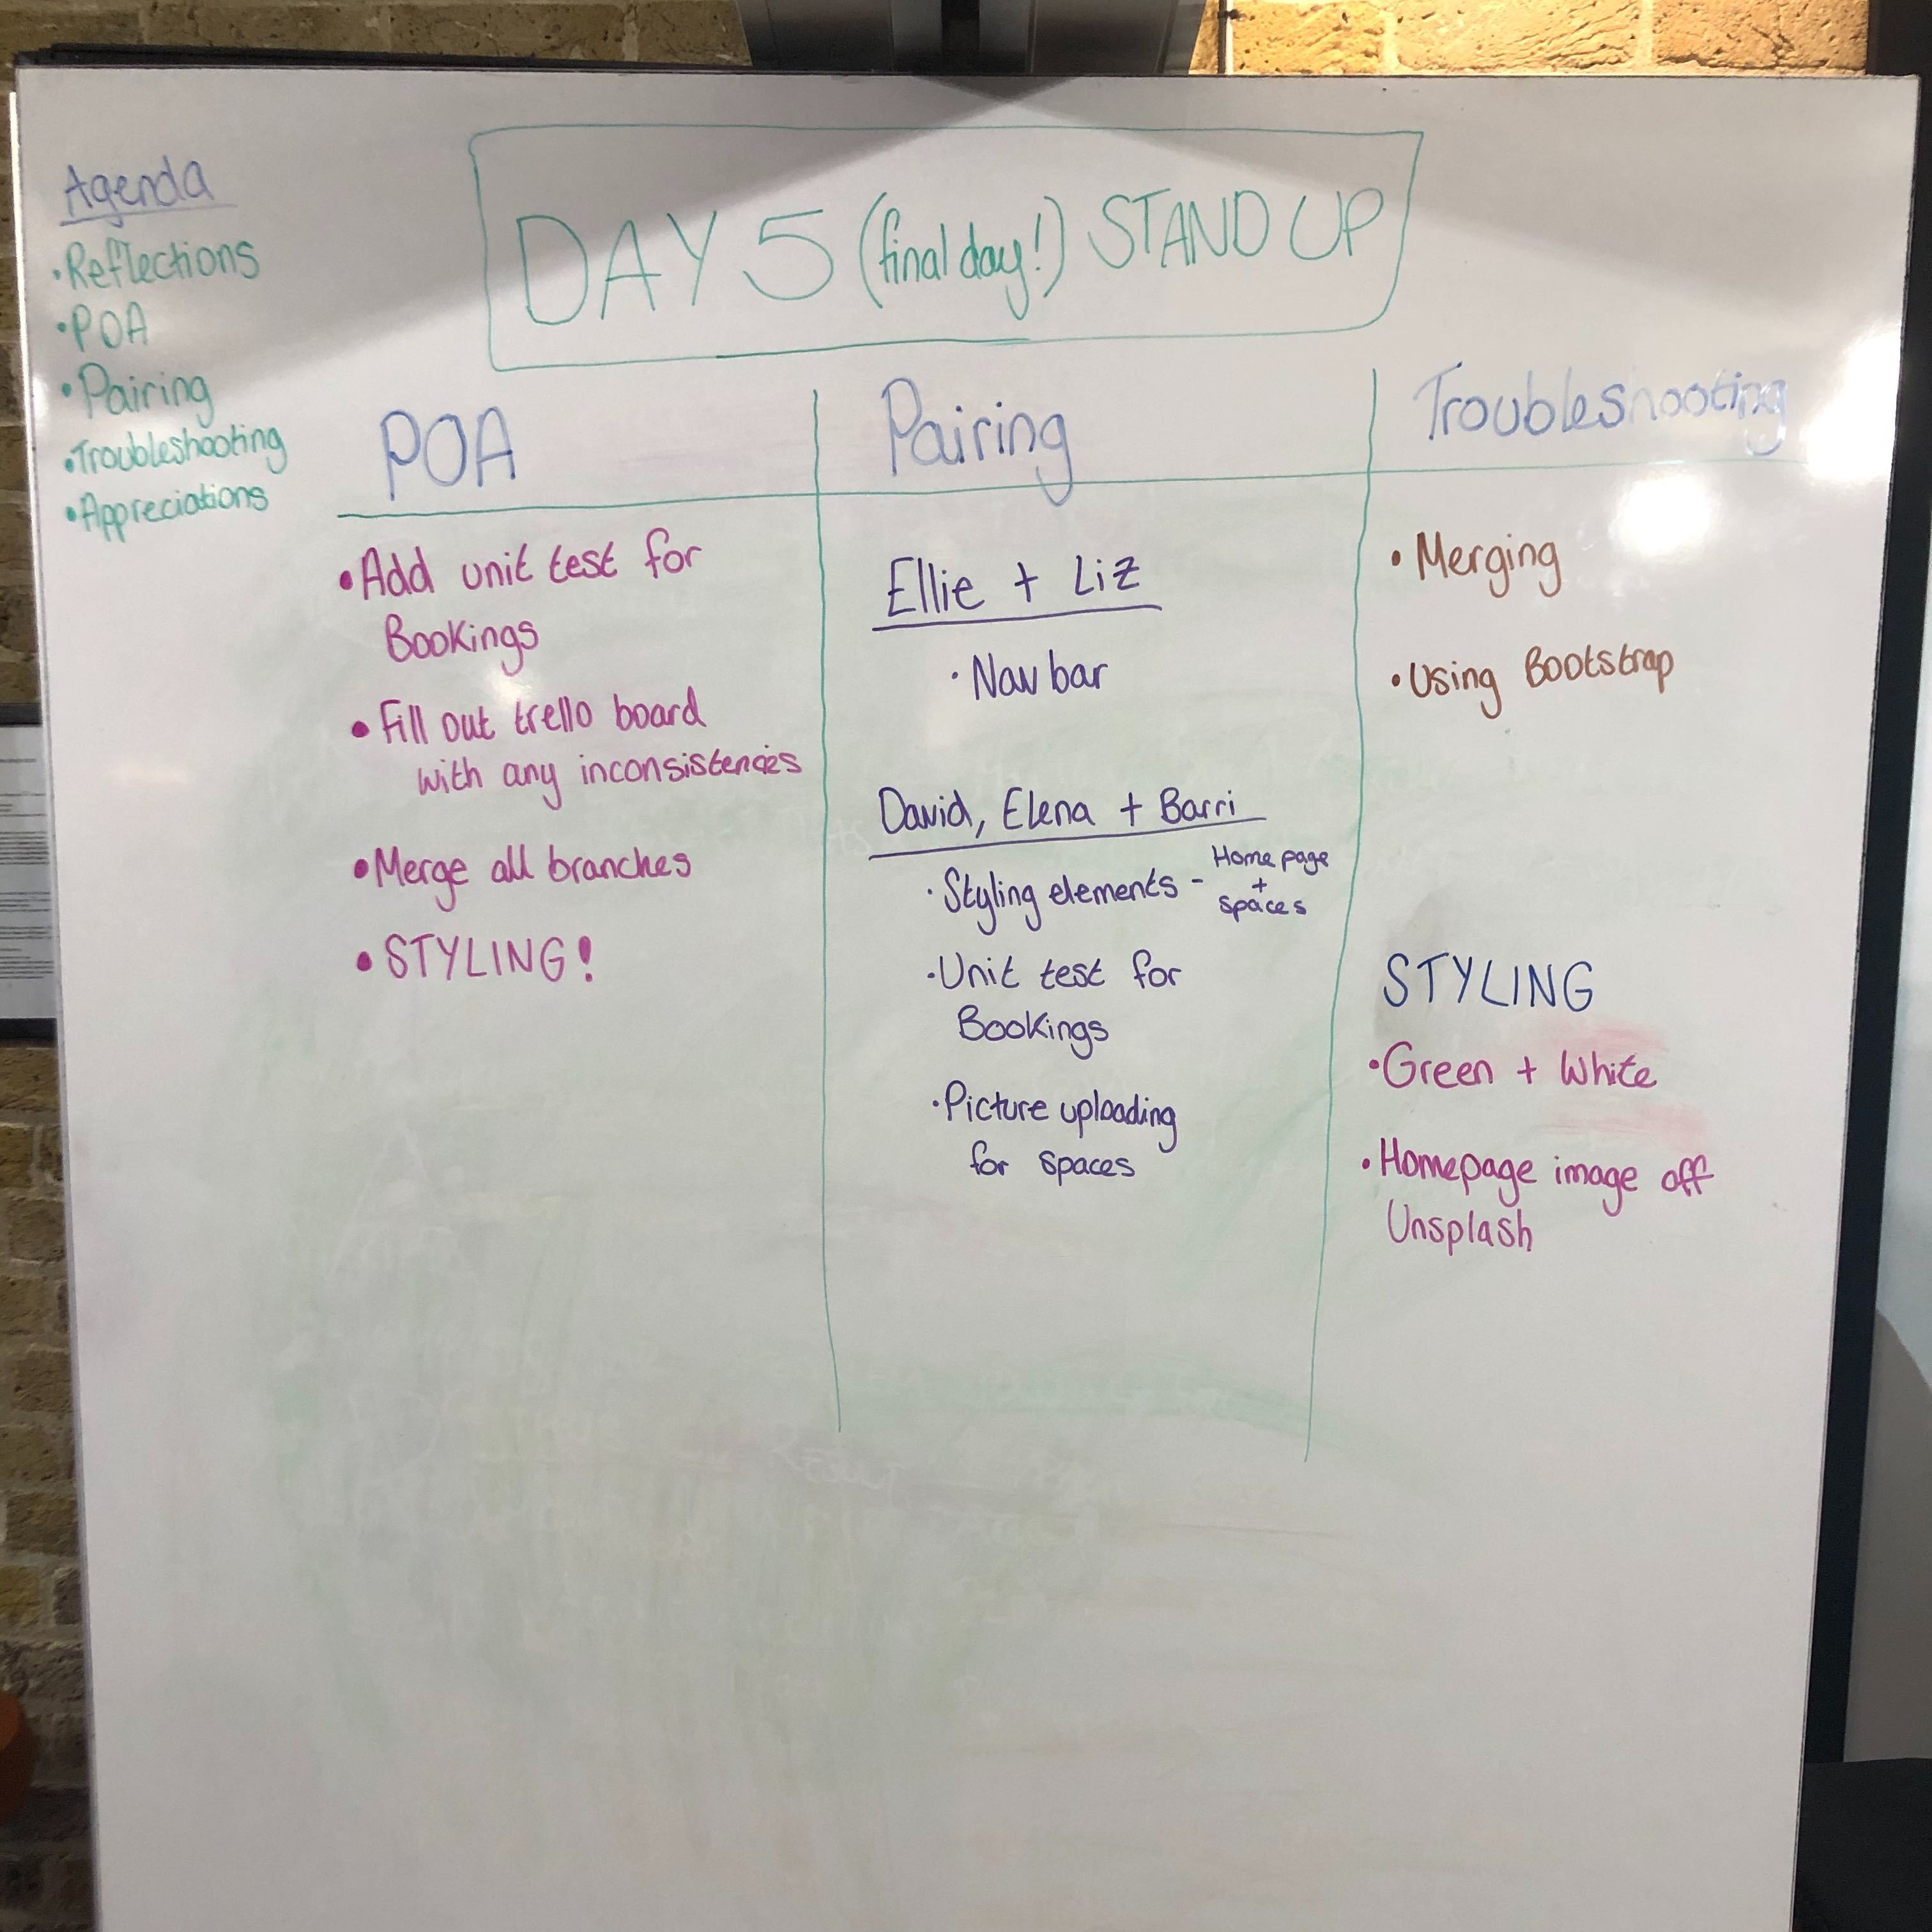 Agenda
•Reflections
•POA
•Pairing
•Troubleshooting
•Appreciations
DAY 5 (final day!) STAND UP
POA
•Add unit test for
Bookings
•Fill out trello board
with any inconsistencies
•Merge all branches
•STYLING!
Pairing
Ellie + Liz
•Nav bar
David, Elena + Barri
•Styling elements - Home page
+
spaces
•Unit test for
Bookings
•Picture uploading
for spaces
Troubleshooting
•Merging
•Using Bootstrap
STYLING
•Green + White
•Homepage image off
Unsplash